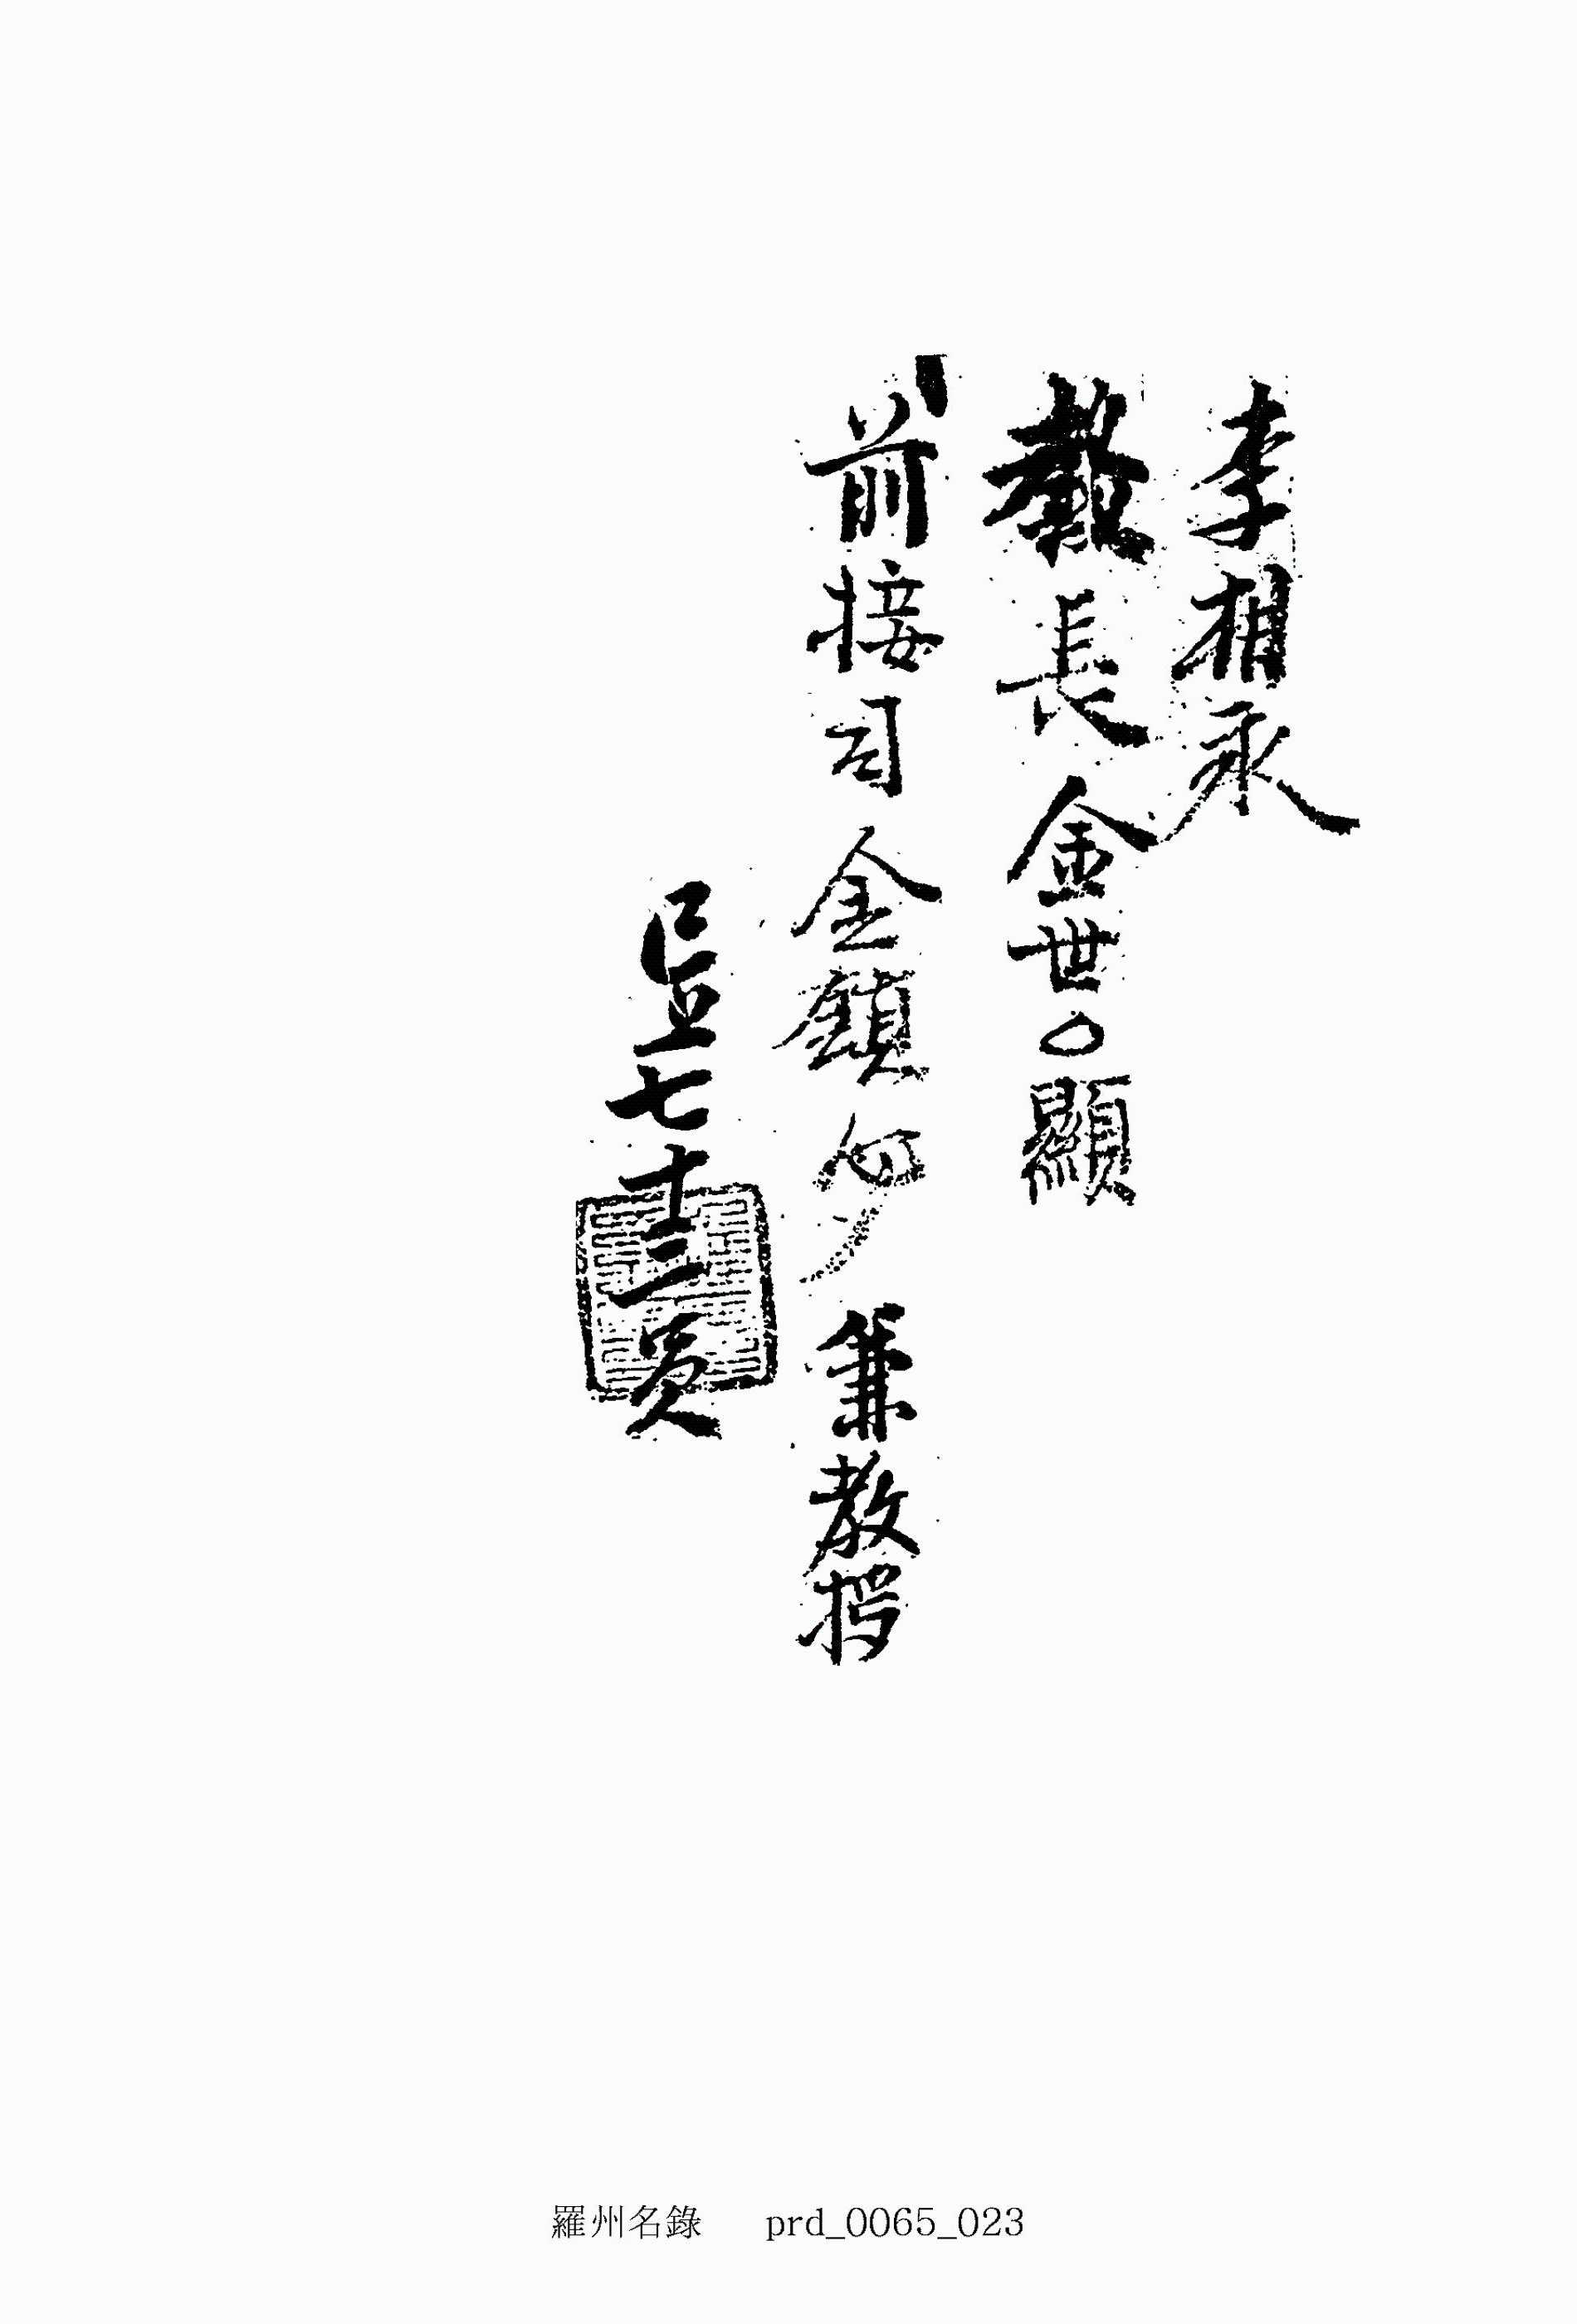 李相永
教長 金世○顯
前接司 金鎭 兼教授
已上七十三員
羅州名錄 prd_0065_023